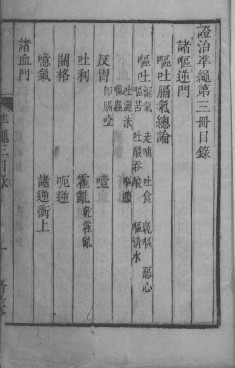 證治準繩第三冊目錄
諸嘔逆門
嘔吐膈氣總論
嘔吐 漏氣 走哺 吐食 乾嘔 惡心
嘔苦 吐酸吞酸 嘔清水
吐涎沫 嘔膿
嘔蟲
反胃 即膈噎 噎
吐利 霍亂 乾霍亂
關格 呃逆
噫氣 諸逆衝上
諸血門